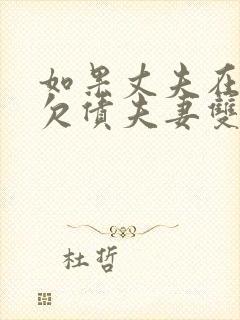 如果丈夫在
欠債夫妻雙
杜哲